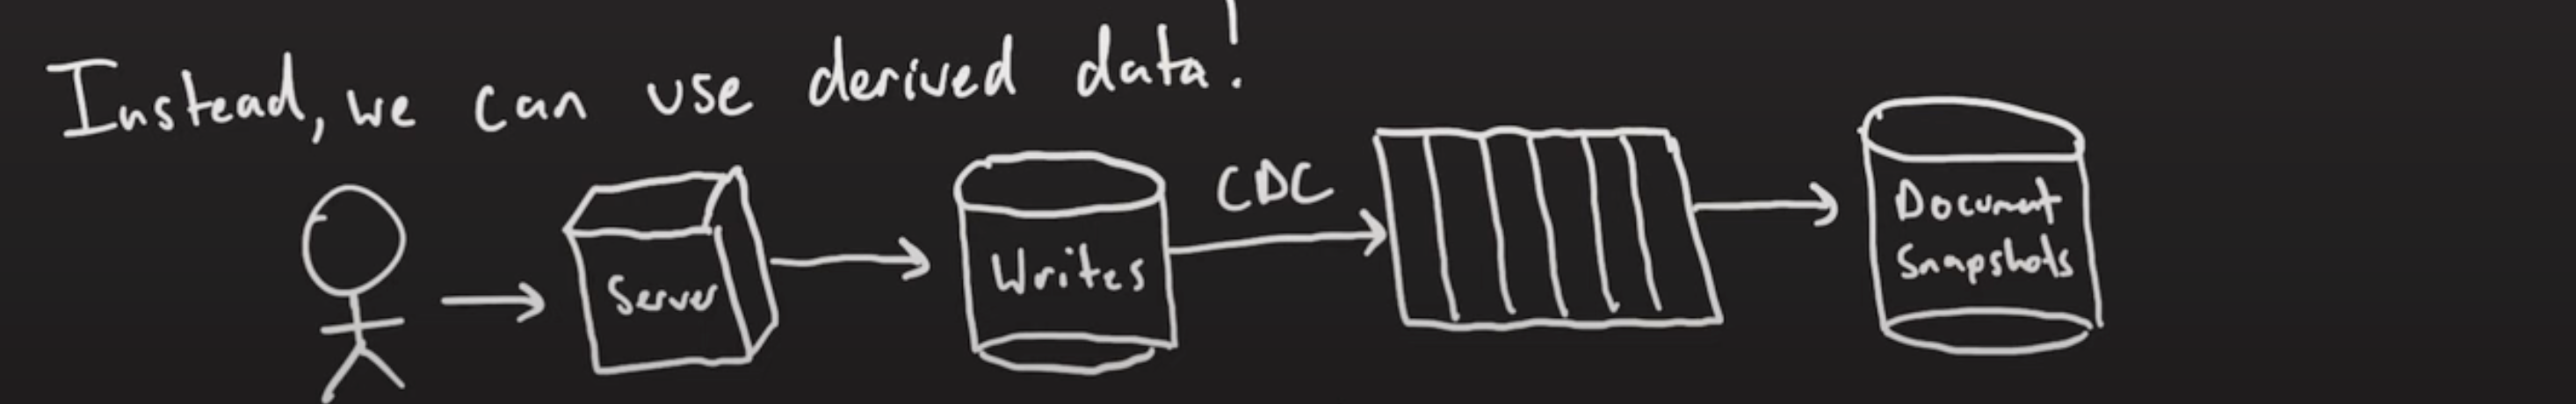 Instead, we can use derived data!
Server
Writes
CDC
Document
Snapshots